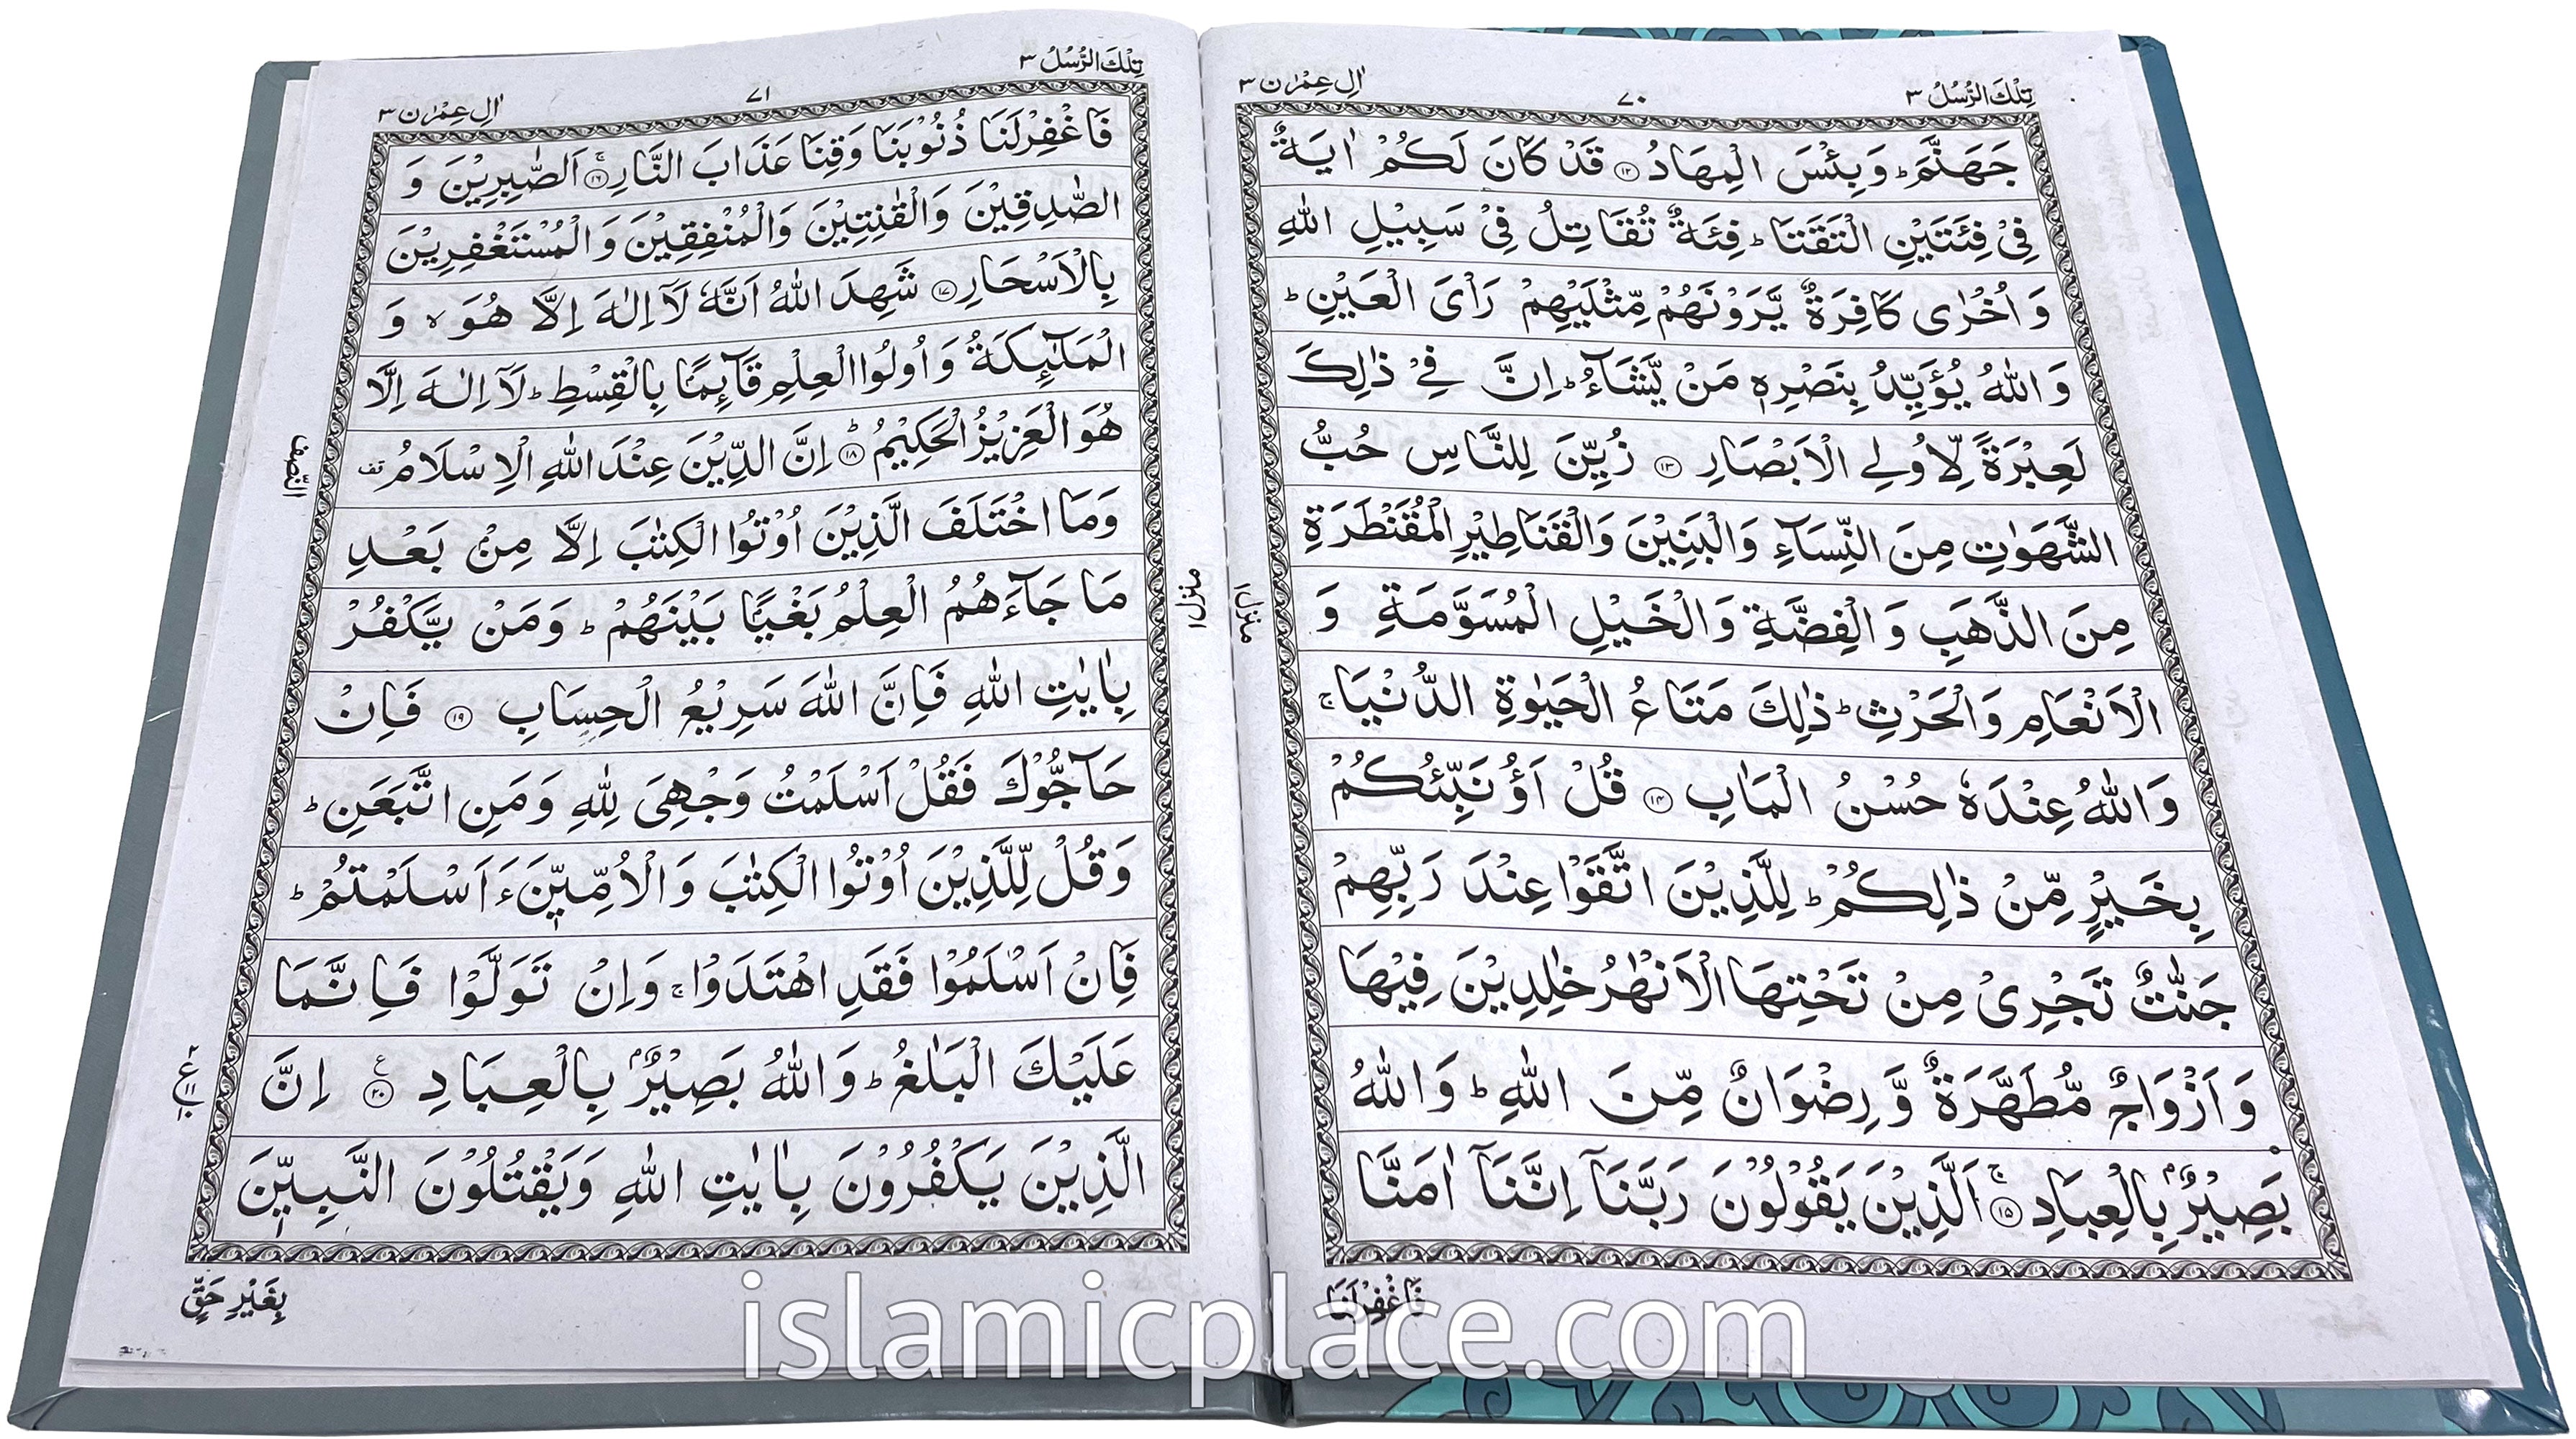 تِلْكَ الرُّسُلُ ٣
٧٠
اٰلِ عِمْرٰن ٣
جَهَنَّمَ ؕ وَبِئْسَ الْمِهَادُ ﴿۱۲﴾ قَدْ كَانَ لَكُمْ اٰيَةٌ
فِىْ فِئَتَيْنِ الْتَقَتَا ؕ فِئَةٌ تُقَاتِلُ فِىْ سَبِيْلِ اللّٰهِ
وَ اُخْرٰى كَافِرَةٌ يَّرَوْنَهُمْ مِّثْلَيْهِمْ رَاْىَ الْعَيْنِ ؕ
وَ اللّٰهُ يُؤَيِّدُ بِنَصْرِهٖ مَنْ يَّشَآءُ ؕ اِنَّ فِىْ ذٰلِكَ
لَعِبْرَةً لِّاُولِى الْاَبْصَارِ ﴿۱۳﴾ زُيِّنَ لِلنَّاسِ حُبُّ
الشَّهَوٰتِ مِنَ النِّسَآءِ وَالْبَنِيْنَ وَالْقَنَاطِيْرِ الْمُقَنْطَرَةِ
مِنَ الذَّهَبِ وَ الْفِضَّةِ وَ الْخَيْلِ الْمُسَوَّمَةِ وَ
الْاَنْعَامِ وَالْحَرْثِ ؕ ذٰلِكَ مَتَاعُ الْحَيٰوةِ الدُّنْيَا ۚ
وَ اللّٰهُ عِنْدَهٗ حُسْنُ الْمَاٰبِ ﴿۱۴﴾ قُلْ اَؤُنَبِّئُكُمْ
بِخَيْرٍ مِّنْ ذٰلِكُمْ ؕ لِلَّذِيْنَ اتَّقَوْا عِنْدَ رَبِّهِمْ
جَنّٰتٌ تَجْرِىْ مِنْ تَحْتِهَا الْاَنْهٰرُ خٰلِدِيْنَ فِيْهَا
وَ اَزْوَاجٌ مُّطَهَّرَةٌ وَّ رِضْوَانٌ مِّنَ اللّٰهِ ؕ وَ اللّٰهُ
بَصِيْرٌۢ بِالْعِبَادِ ﴿۱۵﴾ۚ اَلَّذِيْنَ يَقُوْلُوْنَ رَبَّنَاۤ اِنَّنَاۤ اٰمَنَّا
منزل ١
فَاغْفِرْلَنَا
تِلْكَ الرُّسُلُ ٣
٧١
اٰلِ عِمْرٰن ٣
فَاغْفِرْلَنَا ذُنُوْبَنَا وَقِنَا عَذَابَ النَّارِ ﴿۱۶﴾ۚ اَلصّٰبِرِيْنَ وَ
الصّٰدِقِيْنَ وَالْقٰنِتِيْنَ وَالْمُنْفِقِيْنَ وَالْمُسْتَغْفِرِيْنَ
بِالْاَسْحَارِ ﴿۱۷﴾ شَهِدَ اللّٰهُ اَنَّهٗ لَاۤ اِلٰهَ اِلَّا هُوَ ۙ وَ
الْمَلٰٓئِكَةُ وَ اُولُوا الْعِلْمِ قَآئِمًۢا بِالْقِسْطِ ؕ لَاۤ اِلٰهَ اِلَّا
هُوَ الْعَزِيْزُ الْحَكِيْمُ ﴿۱۸﴾ؕ اِنَّ الدِّيْنَ عِنْدَ اللّٰهِ الْاِسْلَامُ قف
وَمَا اخْتَلَفَ الَّذِيْنَ اُوْتُوا الْكِتٰبَ اِلَّا مِنْۢ بَعْدِ
مَا جَآءَهُمُ الْعِلْمُ بَغْيًۢا بَيْنَهُمْ ؕ وَمَنْ يَّكْفُرْ
بِاٰيٰتِ اللّٰهِ فَاِنَّ اللّٰهَ سَرِيْعُ الْحِسَابِ ﴿۱۹﴾ فَاِنْ
حَآجُّوْكَ فَقُلْ اَسْلَمْتُ وَجْهِىَ لِلّٰهِ وَ مَنِ اتَّبَعَنِ ؕ
وَقُلْ لِّلَّذِيْنَ اُوْتُوا الْكِتٰبَ وَ الْاُمِّيّٖنَ ءَاَسْلَمْتُمْ ؕ
فَاِنْ اَسْلَمُوْا فَقَدِ اهْتَدَوْا ۚ وَاِنْ تَوَلَّوْا فَاِنَّمَا
عَلَيْكَ الْبَلٰغُ ؕ وَ اللّٰهُ بَصِيْرٌۢ بِالْعِبَادِ ﴿۲۰﴾ اِنَّ
الَّذِيْنَ يَكْفُرُوْنَ بِاٰيٰتِ اللّٰهِ وَيَقْتُلُوْنَ النَّبِيّٖنَ
النّصف
منزل ١
بِغَيْرِ حَقٍّ
islamicplace.com